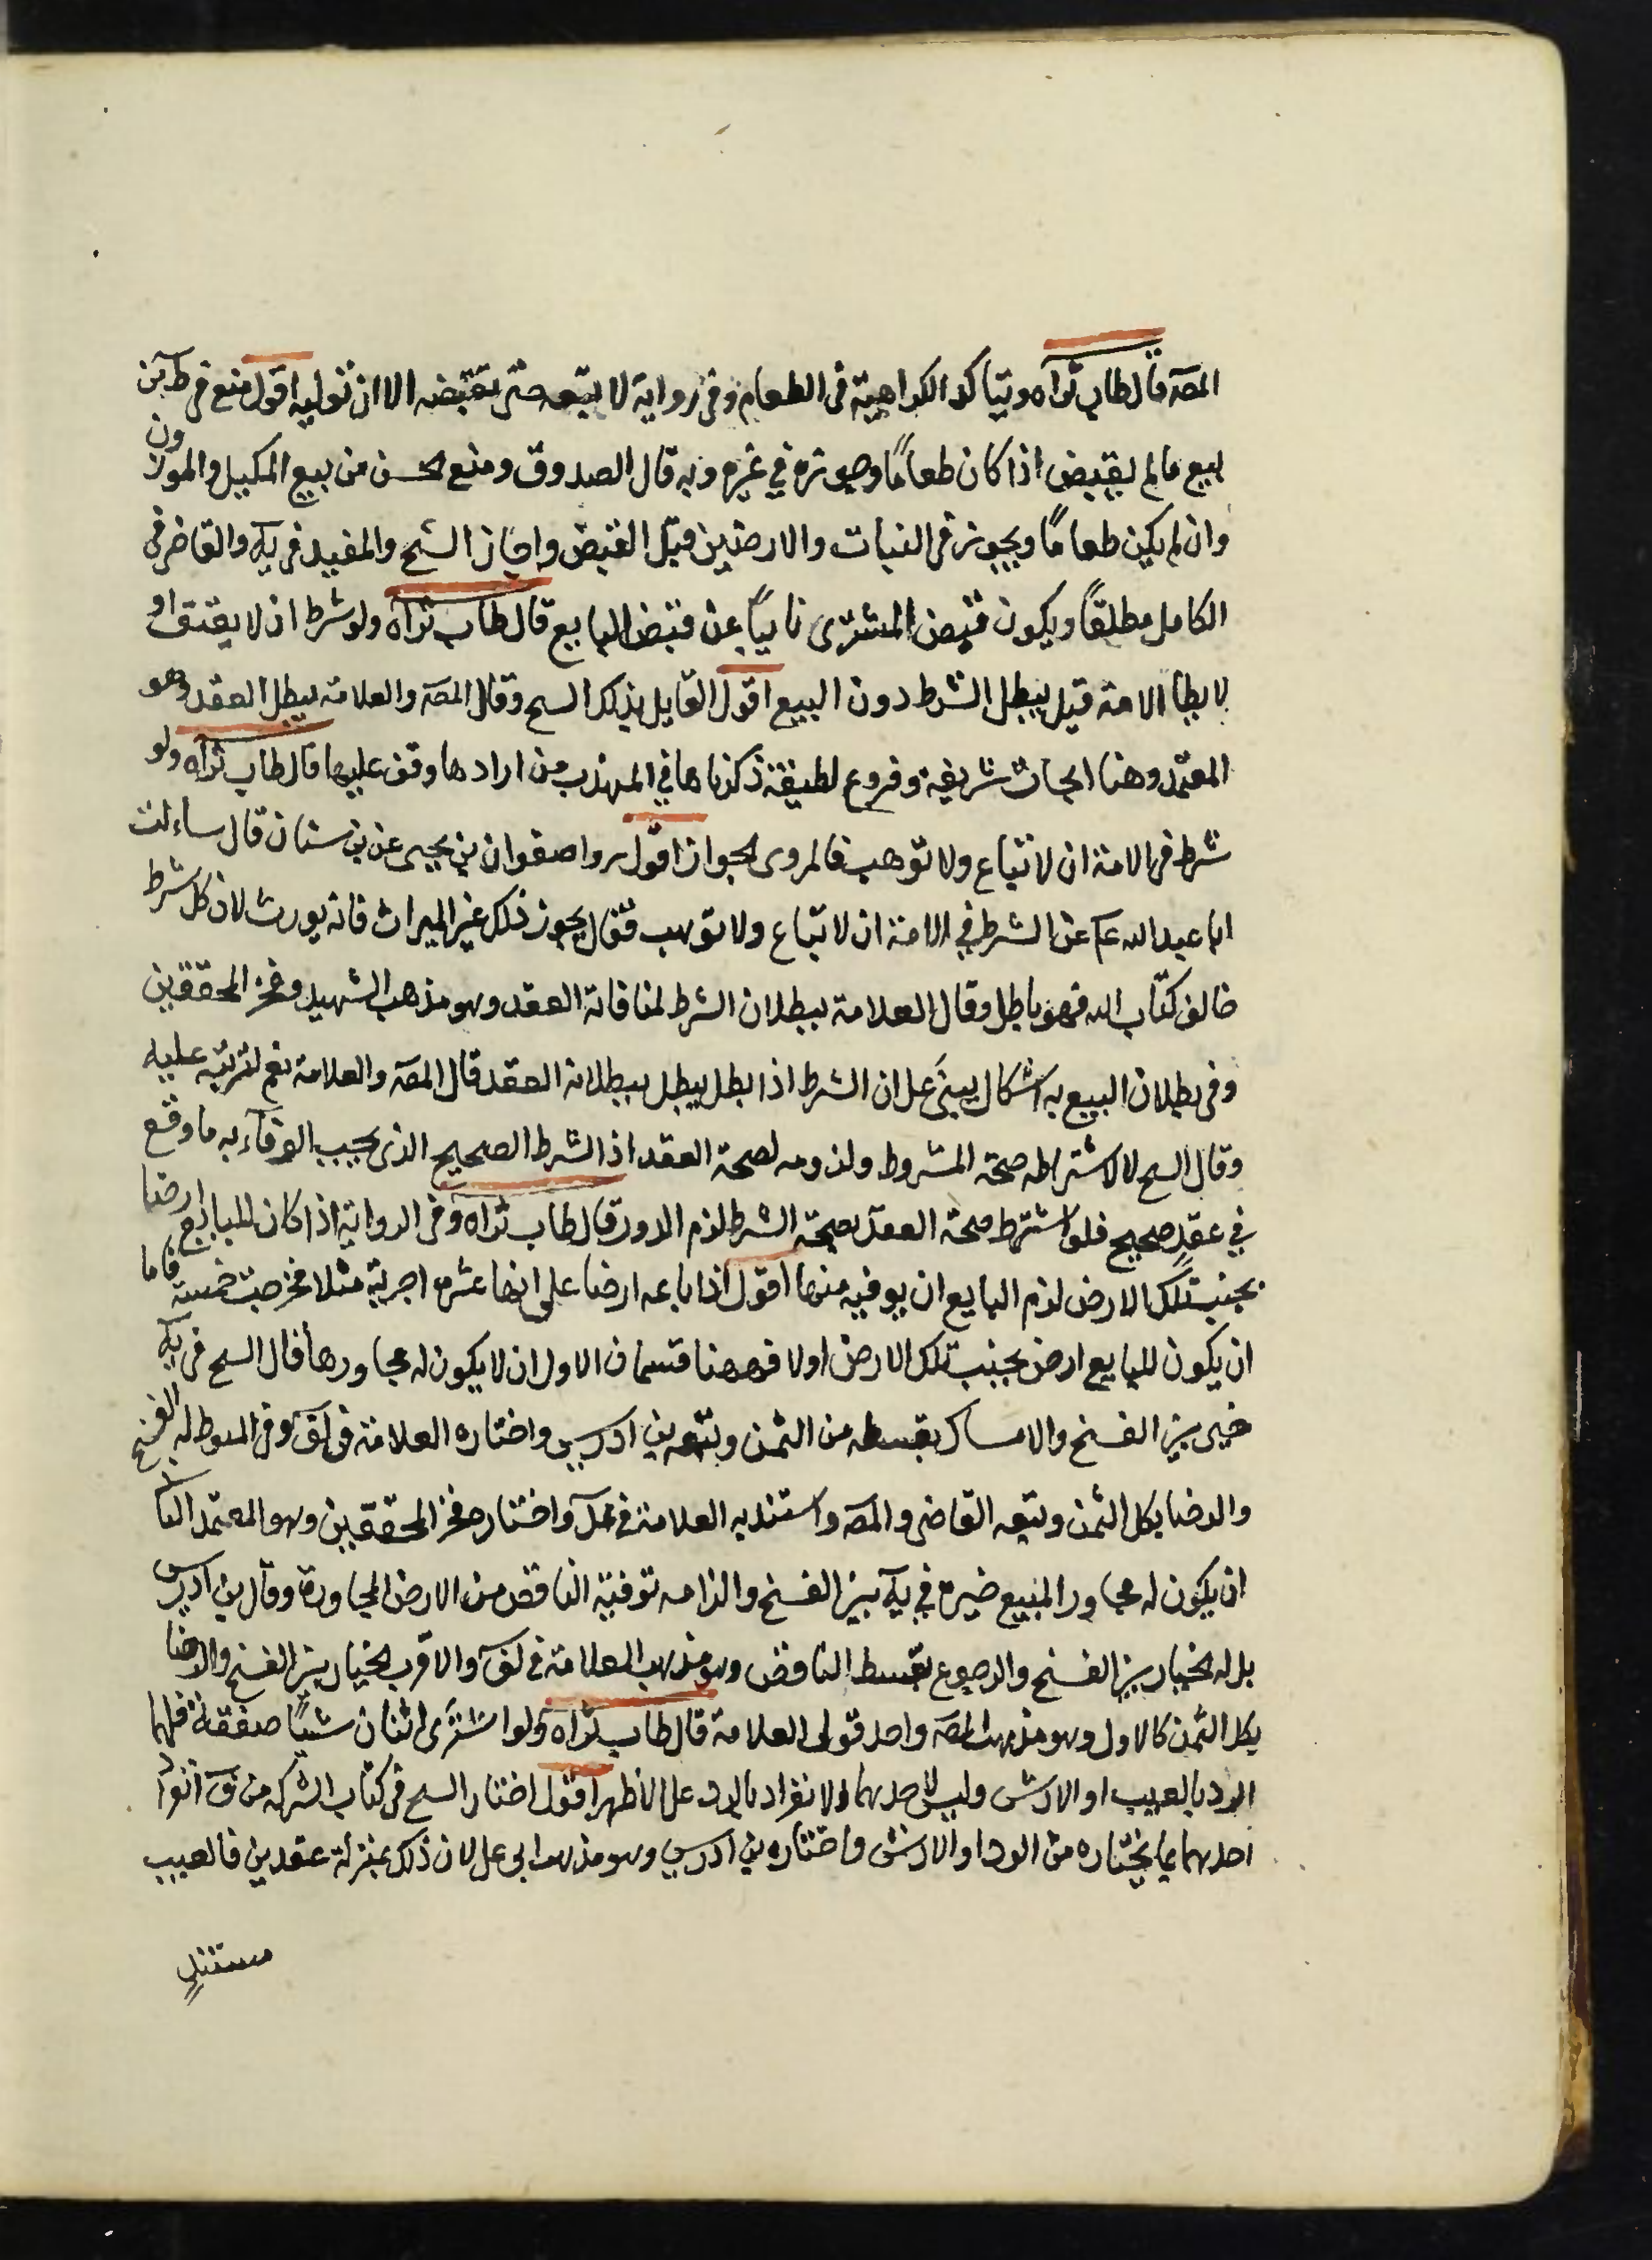 المصَ قال طاب ثراه ويتاكد الكراهية فى الطعام وفى رواية لا يبعه حتى يقبضه الا ان توليه اقول منع فى ط من
بيع ما لم يقبض اذا كان طعامًا وجوزه في غيره وبه قال الصدوق ومنع الحسن من بيع المكيل والموزون
وان لم يكن طعامًا ويجوز فى النبات والارضين قبل القبض واجاز الشيخ والمفيد فى يه والقاضى فى
الكامل مطلقًا ويكون قبض المشترى نايبًا عن قبض البايع قال طاب ثراه ولو شرط ان لا يعتق او
لا يطا الامة قيل يبطل الشرط دون البيع اقول القايل بذلك السح وقال المصَ والعلامة يبطل العقد وهو
المعتمد وهنا ابحاث شريفة وفروع لطيفة ذكرناها في المهذب من ارادها وقف عليها قال طاب ثراه ولو
شرط فى الامة ان لا تباع ولا توهب فالمروى الجواز اقول روا صفوان بن يحيى عن بن سنان قال ساءلت
ابا عبد الله عم عن الشرط في الامة ان لا تباع ولا توهب فقال يجوز ذلك غير الميراث فانه يورث لان كل شرط
خالف كتاب الله فهو باطل وقال العلامة ببطلان الشرط لمنافاته العقد وهو مذهب الشهيد وفخر المحققين
وفى بطلان البيع به اشكال يبنى على ان الشرط اذا بطل يبطل ببطلانه العقد قال المصَ والعلامة نعم لترتبه عليه
وقال السح لا لاشتراطه صحة المشروط ولزومه لصحة العقد اذ الشرط الصحيح الذى يجب الوفاء به ما وقع
في عقدٍ صحيح فلو اشترط صحة العقد بصحة الشرط لزم الدور قال طاب ثراه وفى الرواية اذا كان للبايع ارضا
بجنب تلك الارض لزم البايع ان يوفيه منها اقول اذا باعه ارضا على انها عشرة اجربة مثلا فخرجت خمسة فاما
ان يكون للبايع ارض بجنب تلك الارض اولا فههنا قسمان الاول ان لا يكون له مجاورها فقال السح فى يه
خير بين الفسخ والامساك بقسطه من الثمن وتبعه بن ادريس واختاره العلامة فى لف وفى المبسوط له الفسخ
والرضا بكل الثمن وتبعه القاضى والمصَ واستند به العلامة فى واختاره فخر المحققين وهو المعتمد الثا
ان يكون له مجاور المبيع خيره في يه بين الفسخ والزامه توفية الناقص من الارض المجاورة وقال بن ادريس
بل له الخيار بين الفسخ والرجوع بقسط الناقص وهو مذهب العلامة فى لف والاقرب الخيار بين الفسخ والرضا
بكل الثمن كالاول وهو مذهب المصَ واحد قولى العلامة قال طاب ثراه ولو اشترى اثنان شيئًا صفقة فلهما
الرد بالعيب او الارش وليس لاحدهما الانفراد بالرد على الاظهر اقول اختار السح فى كتاب الشركه من ف انفراد
احدهما بما يختاره من الرد او الارش واختاره بن ادريس وهو مذهب ابى على لان ذلك بمنزلة عقدين فالعيب